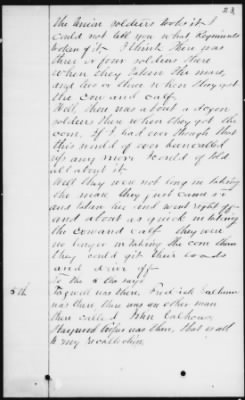 23
the Union soldiers took it I
could not tell you what Regiments
token of it - I think there was
three or four soldiers there
when they taken the mare,
and two or three when they got
the cow and calf.
Well, there was about a dozen
soldiers there when they got the
corn. If I had ever though that
this would of ever
up any more I could of told
all about it.
Well they were not long in taking
the mare they just came in
and taken her and went right off
and about as quick in taking
the cow and calf they were
no longer in taking the corn than
they could git their loads
and drive off
To the 5 he says
5th
was there, Fredrick Calhoun
was there there was an other man
there called John Calhoun,
was there, that is all
to my recollection.